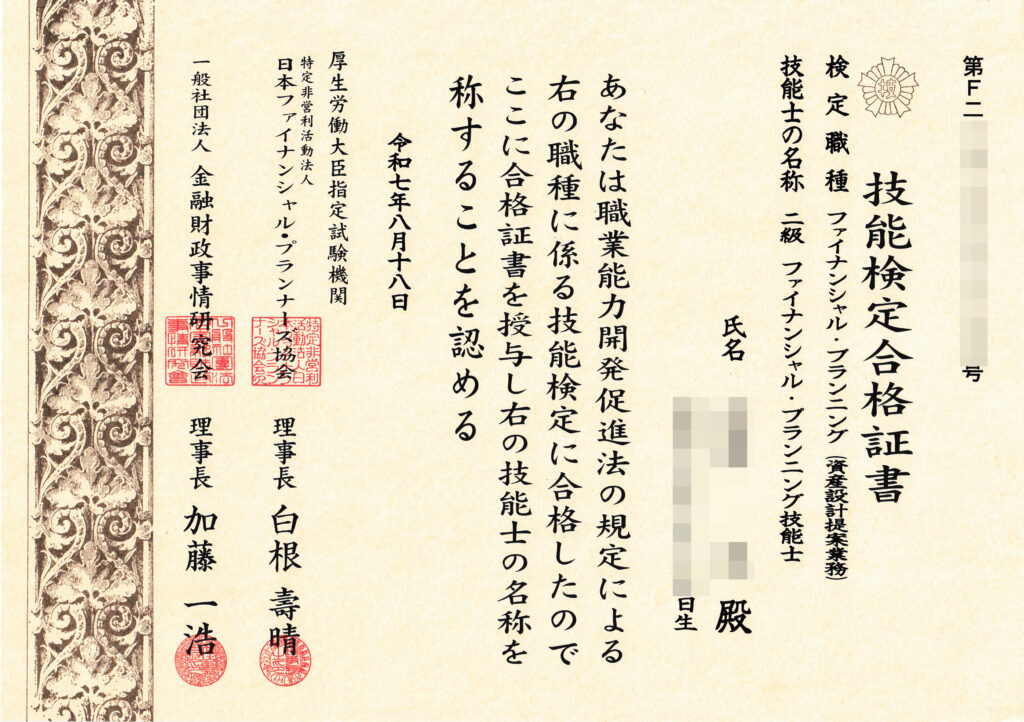 第F二
号
技能検定合格証書
検定職種 ファイナンシャル・プランニング(資産設計提案業務)
技能士の名称 二級 ファイナンシャル・プランニング技能士
氏名
殿
日生
あなたは職業能力開発促進法の規定による
右の職種に係る技能検定に合格したので
ここに合格証書を授与し右の技能士の名称を
称することを認める
令和七年八月十八日
厚生労働大臣指定試験機関
特定非営利活動法人
日本ファイナンシャル・プランナーズ協会 理事長 白根壽晴
一般社団法人 金融財政事情研究会 理事長 加藤一浩